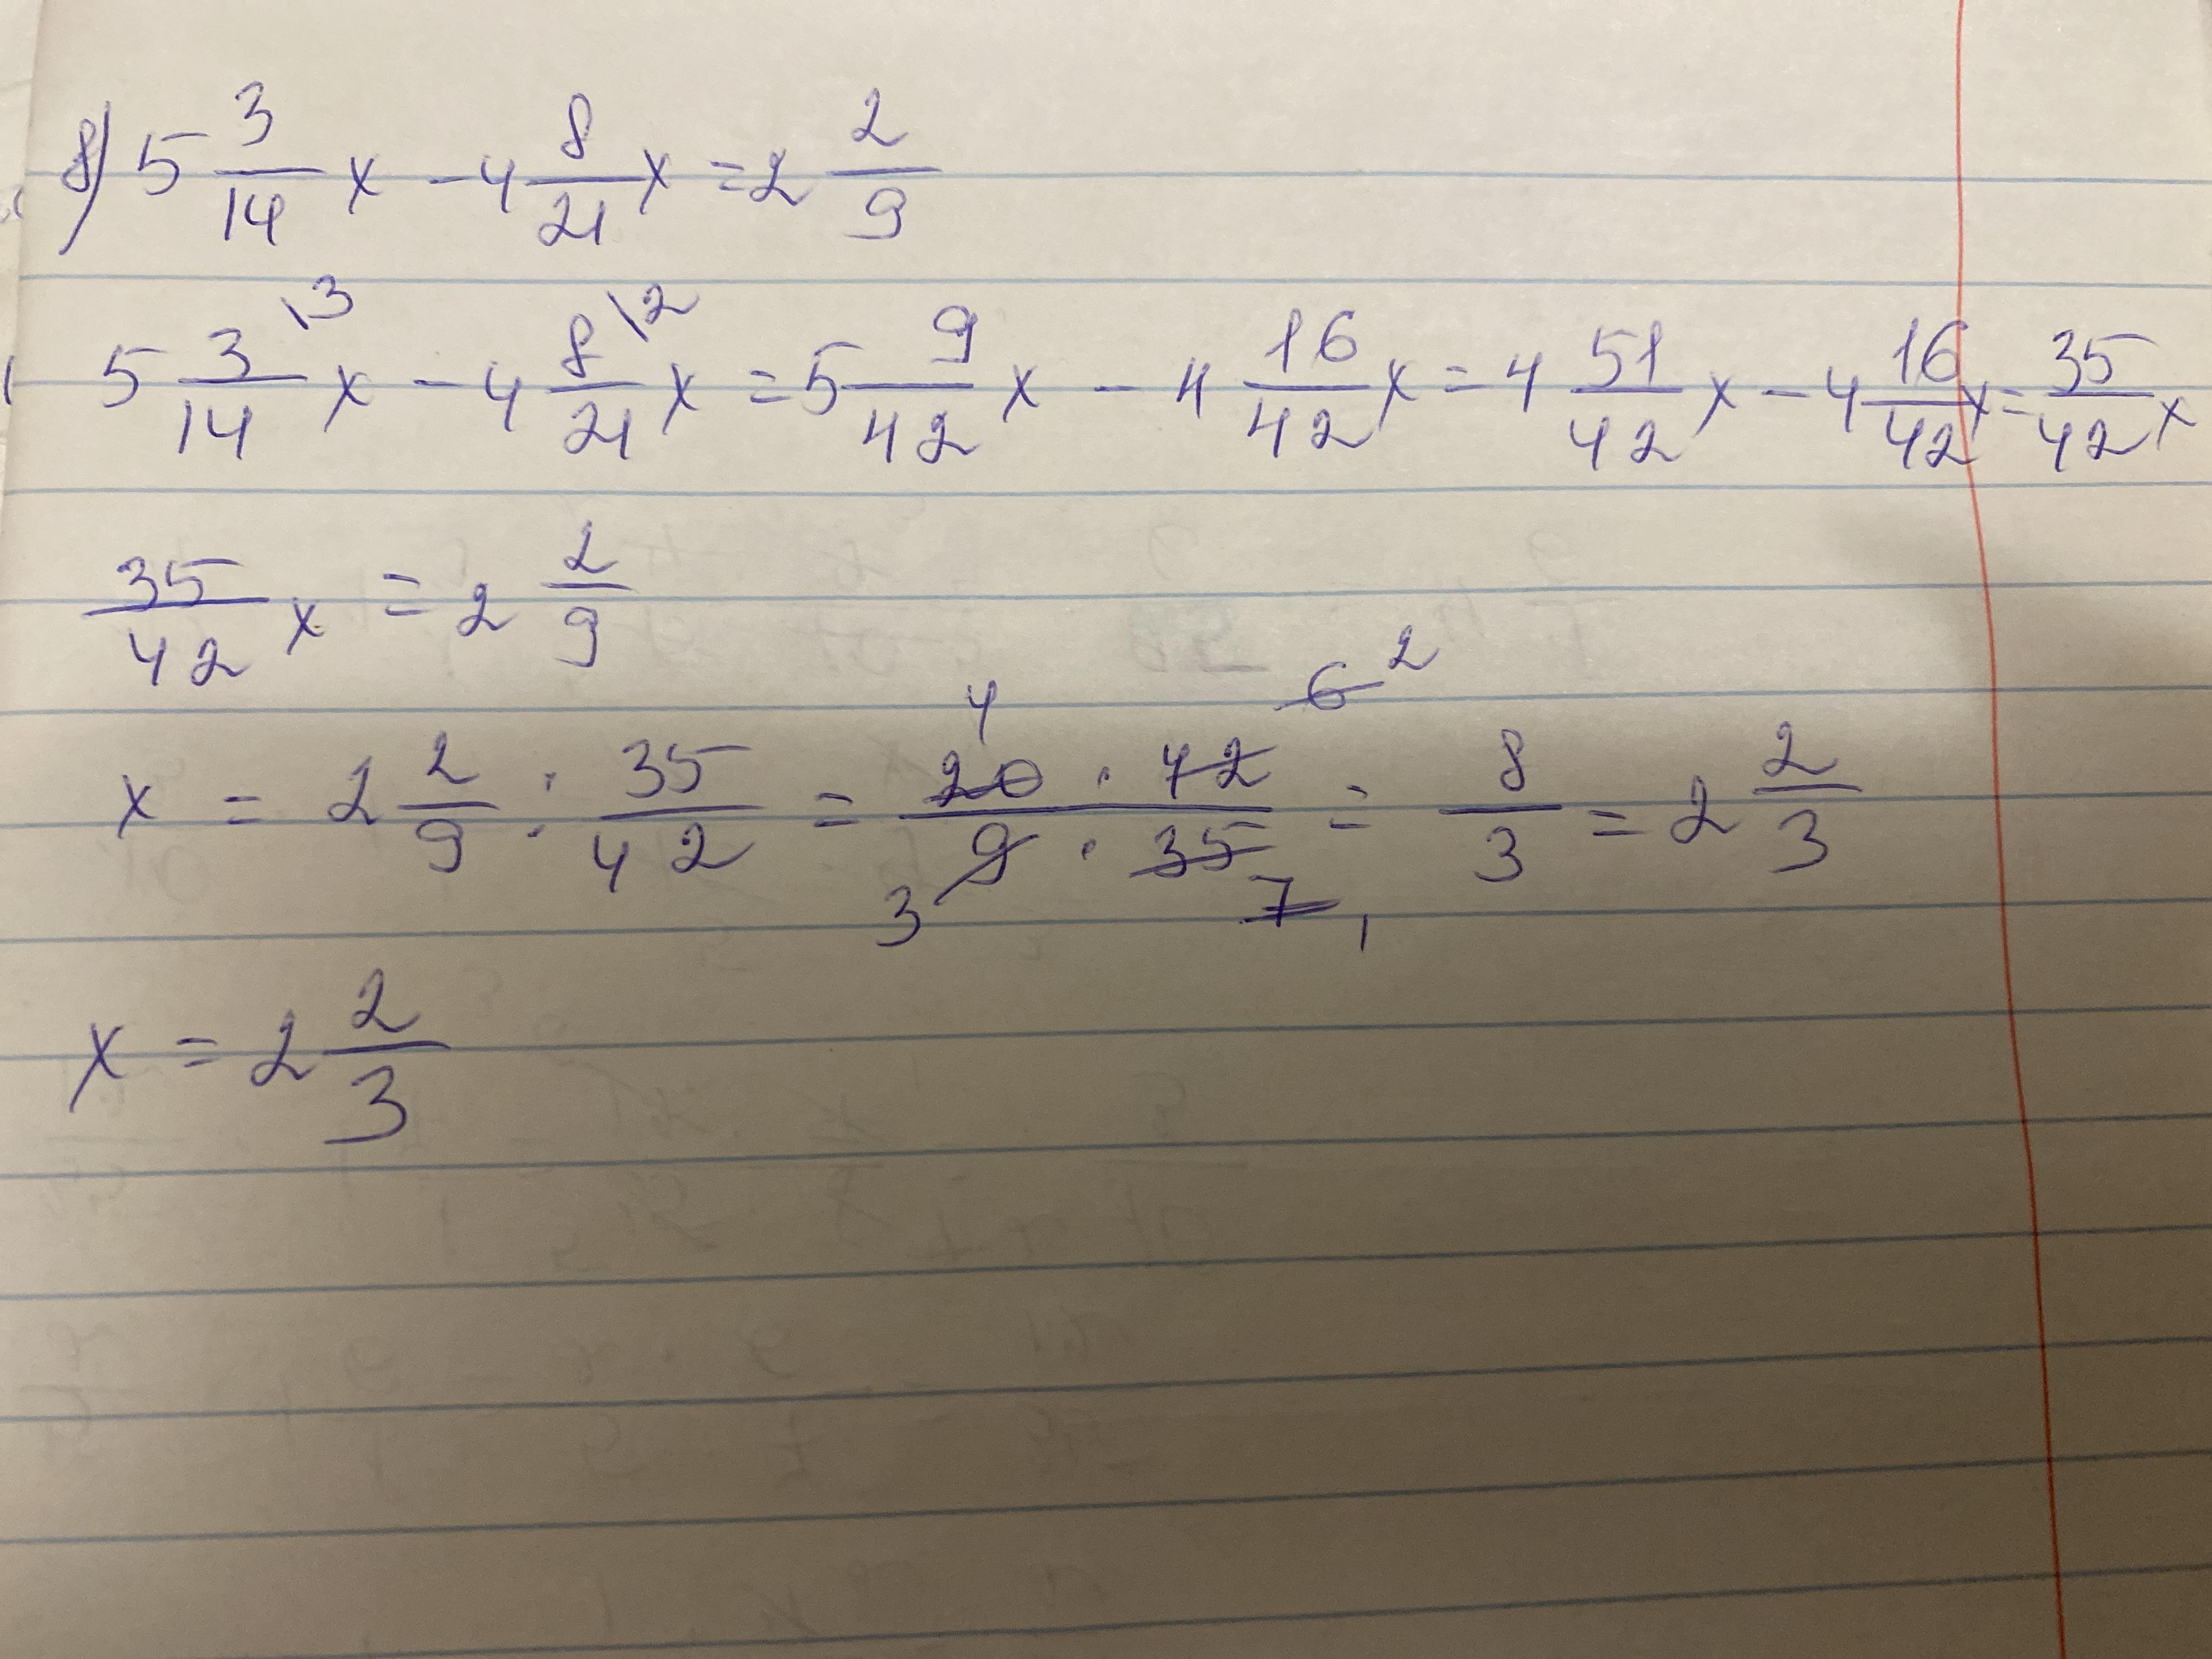 8) 5 3/14 x - 4 8/21 x = 2 2/9
5 3\3/14 x - 4 8\2/21 x = 5 9/42 x - 4 16/42 x = 4 51/42 x - 4 16/42 x = 35/42 x
35/42 x = 2 2/9
x = 2 2/9 : 35/42 = 20 4 · 42 6 2 / 9 3 · 35 7 1 = 8/3 = 2 2/3
x = 2 2/3